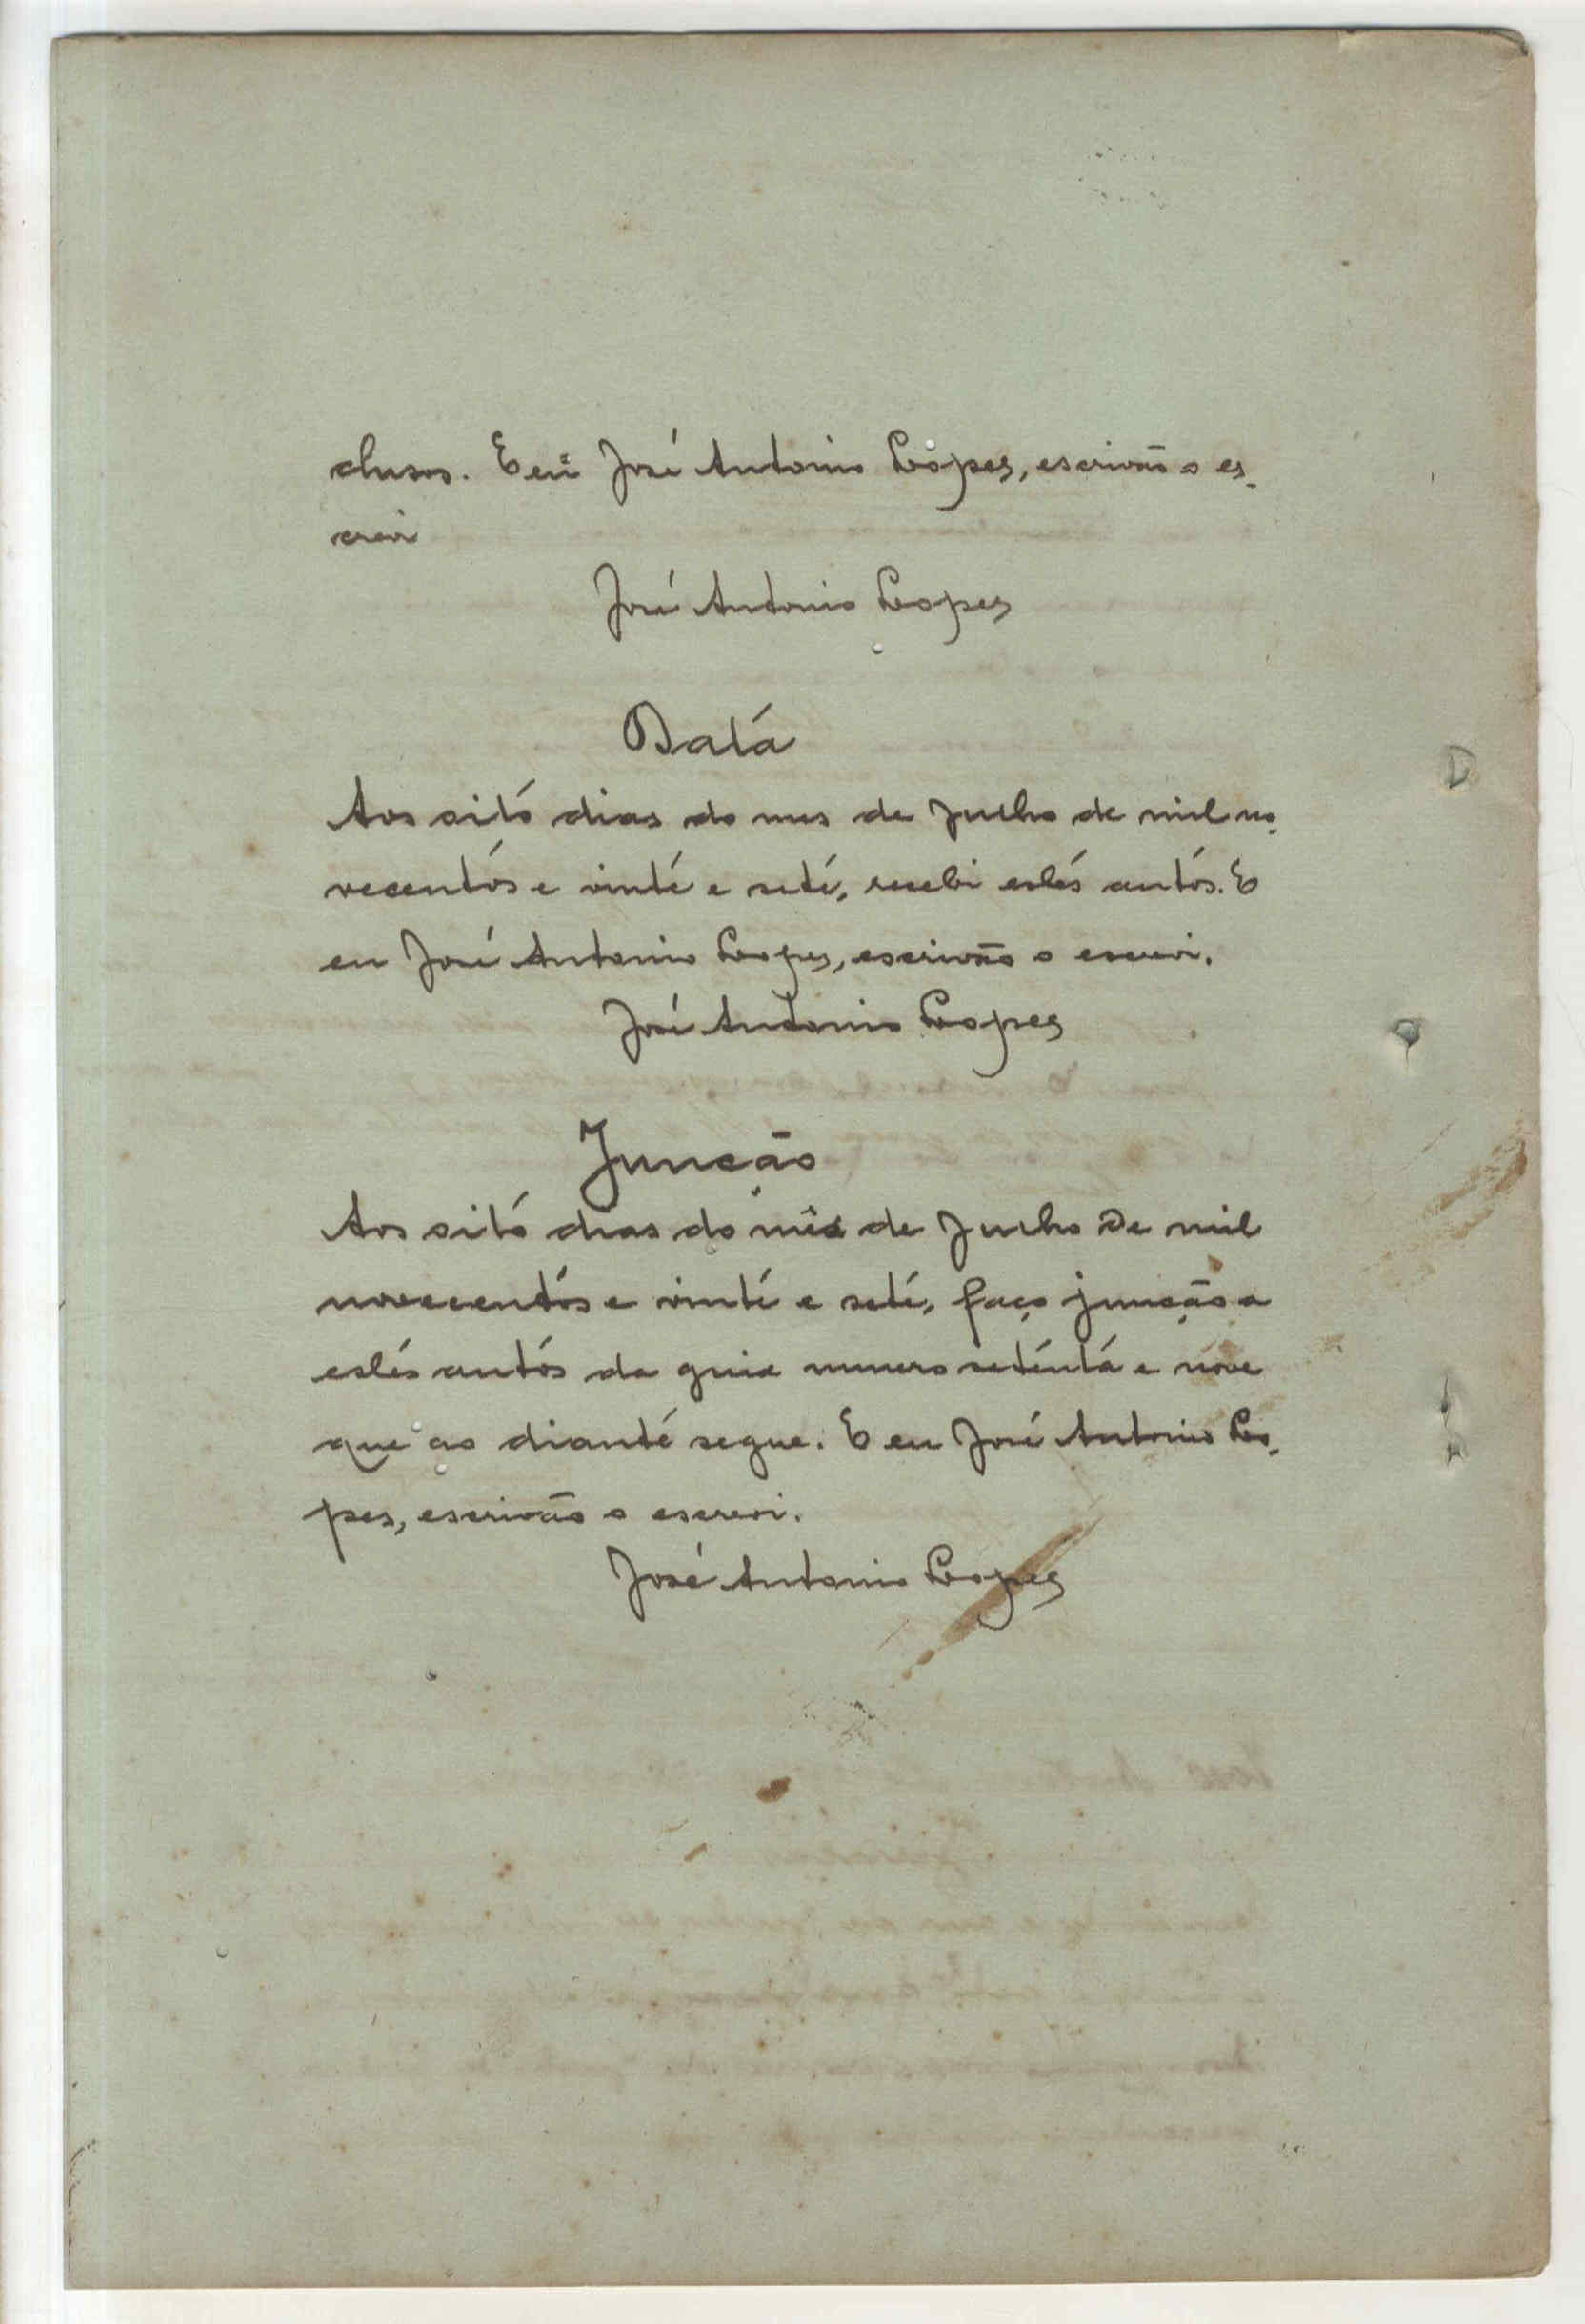 clusos. E eu José Antonio Lopes, escrivão o es-
crevi
José Antonio Lopes
Data
Aos oito dias do mes de Julho de mil no-
vecentos e vinte e sete, recebi estes autos. E
eu José Antonio Lopes, escrivão o escrevi.
José Antonio Lopes
Junção
Aos oito dias do mês de Julho de mil
novecentos e vinte e sete, faço junção a
estes autos da guia numero setenta e nove
que ao diante segue. E eu José Antonio Lo-
pes, escrivão o escrevi.
José Antonio Lopes